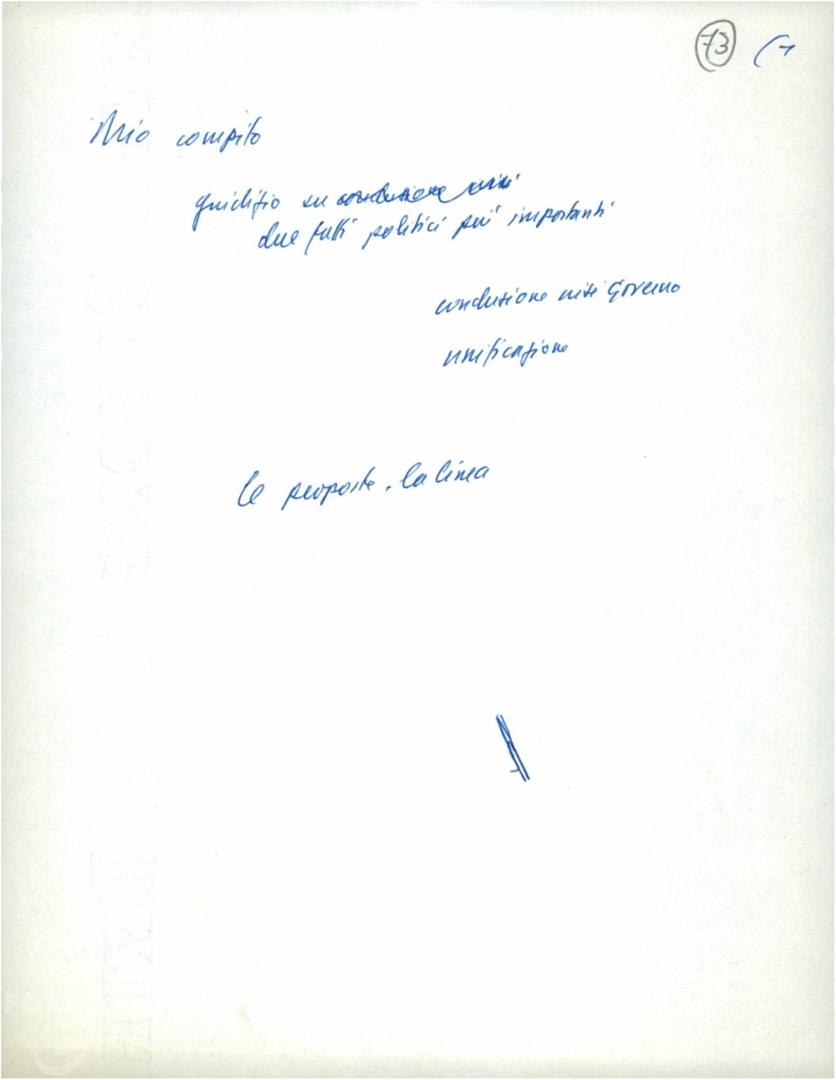 73 (1
Mio compito
giudizio su conclusione crisi
due fatti politici più importanti
conclusione crisi Governo
unificazione
le proposte, la linea